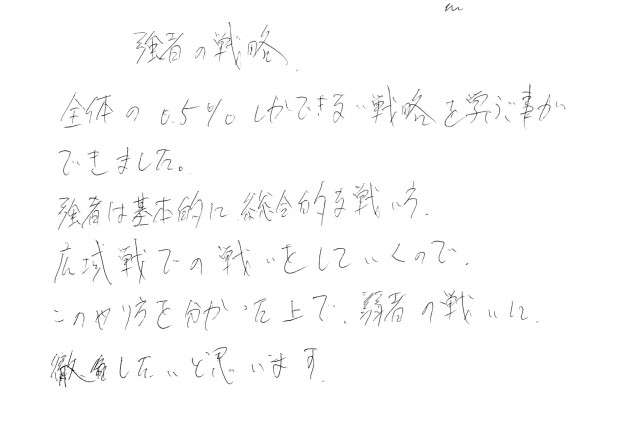 強者の戦略
全体の0.5%しかできない戦略を学ぶ事が
できました。
強者は基本的に、総合的な戦い方、
広域戦での戦いをしていくので、
このやり方を分かった上で、弱者の戦いに
徹底したいと思います。